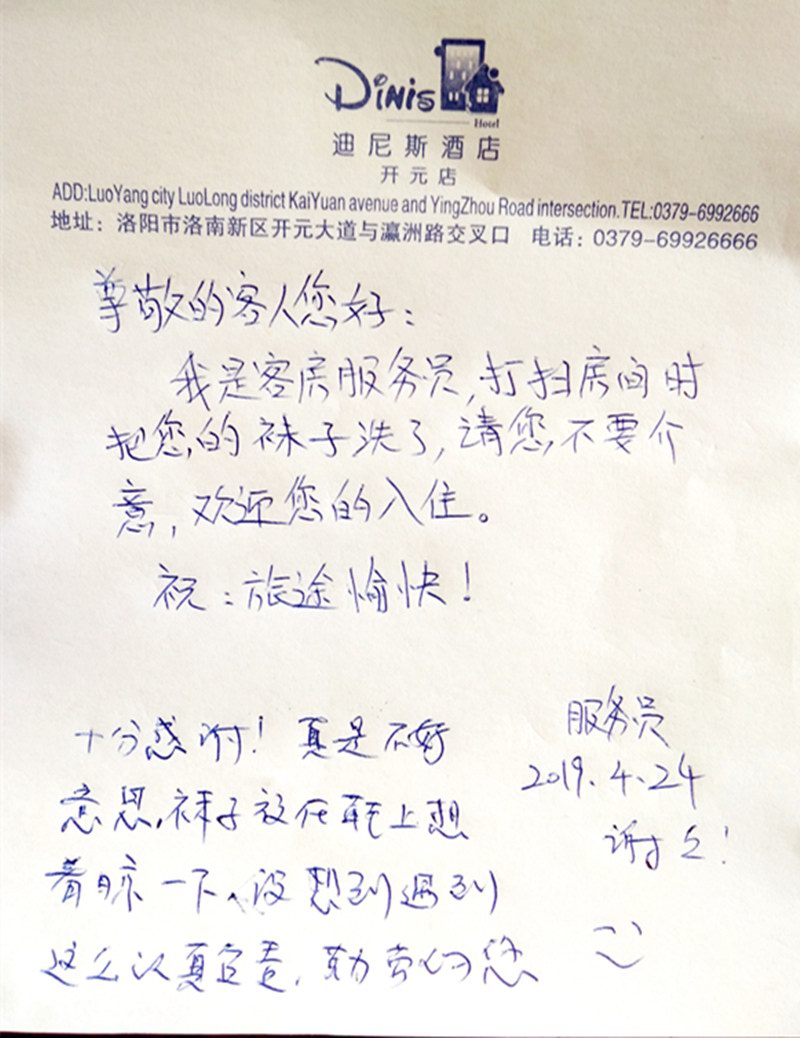 Dinis
Hotel
迪尼斯酒店
开元店
ADD:LuoYang city LuoLong district KaiYuan avenue and YingZhou Road intersection.TEL:0379-6992666
地址：洛阳市洛南新区开元大道与瀛洲路交叉口 电话：0379-69926666
尊敬的客人您好：
我是客房服务员,打扫房间时
把您的袜子洗了,请您不要介
意,欢迎您的入住。
祝：旅途愉快!
服务员
2019.4.24
谢谢!
十分感谢! 真是不好
意思,袜子放在鞋上想
着晾一下、没想到遇到
这么认真负责,勤劳的您